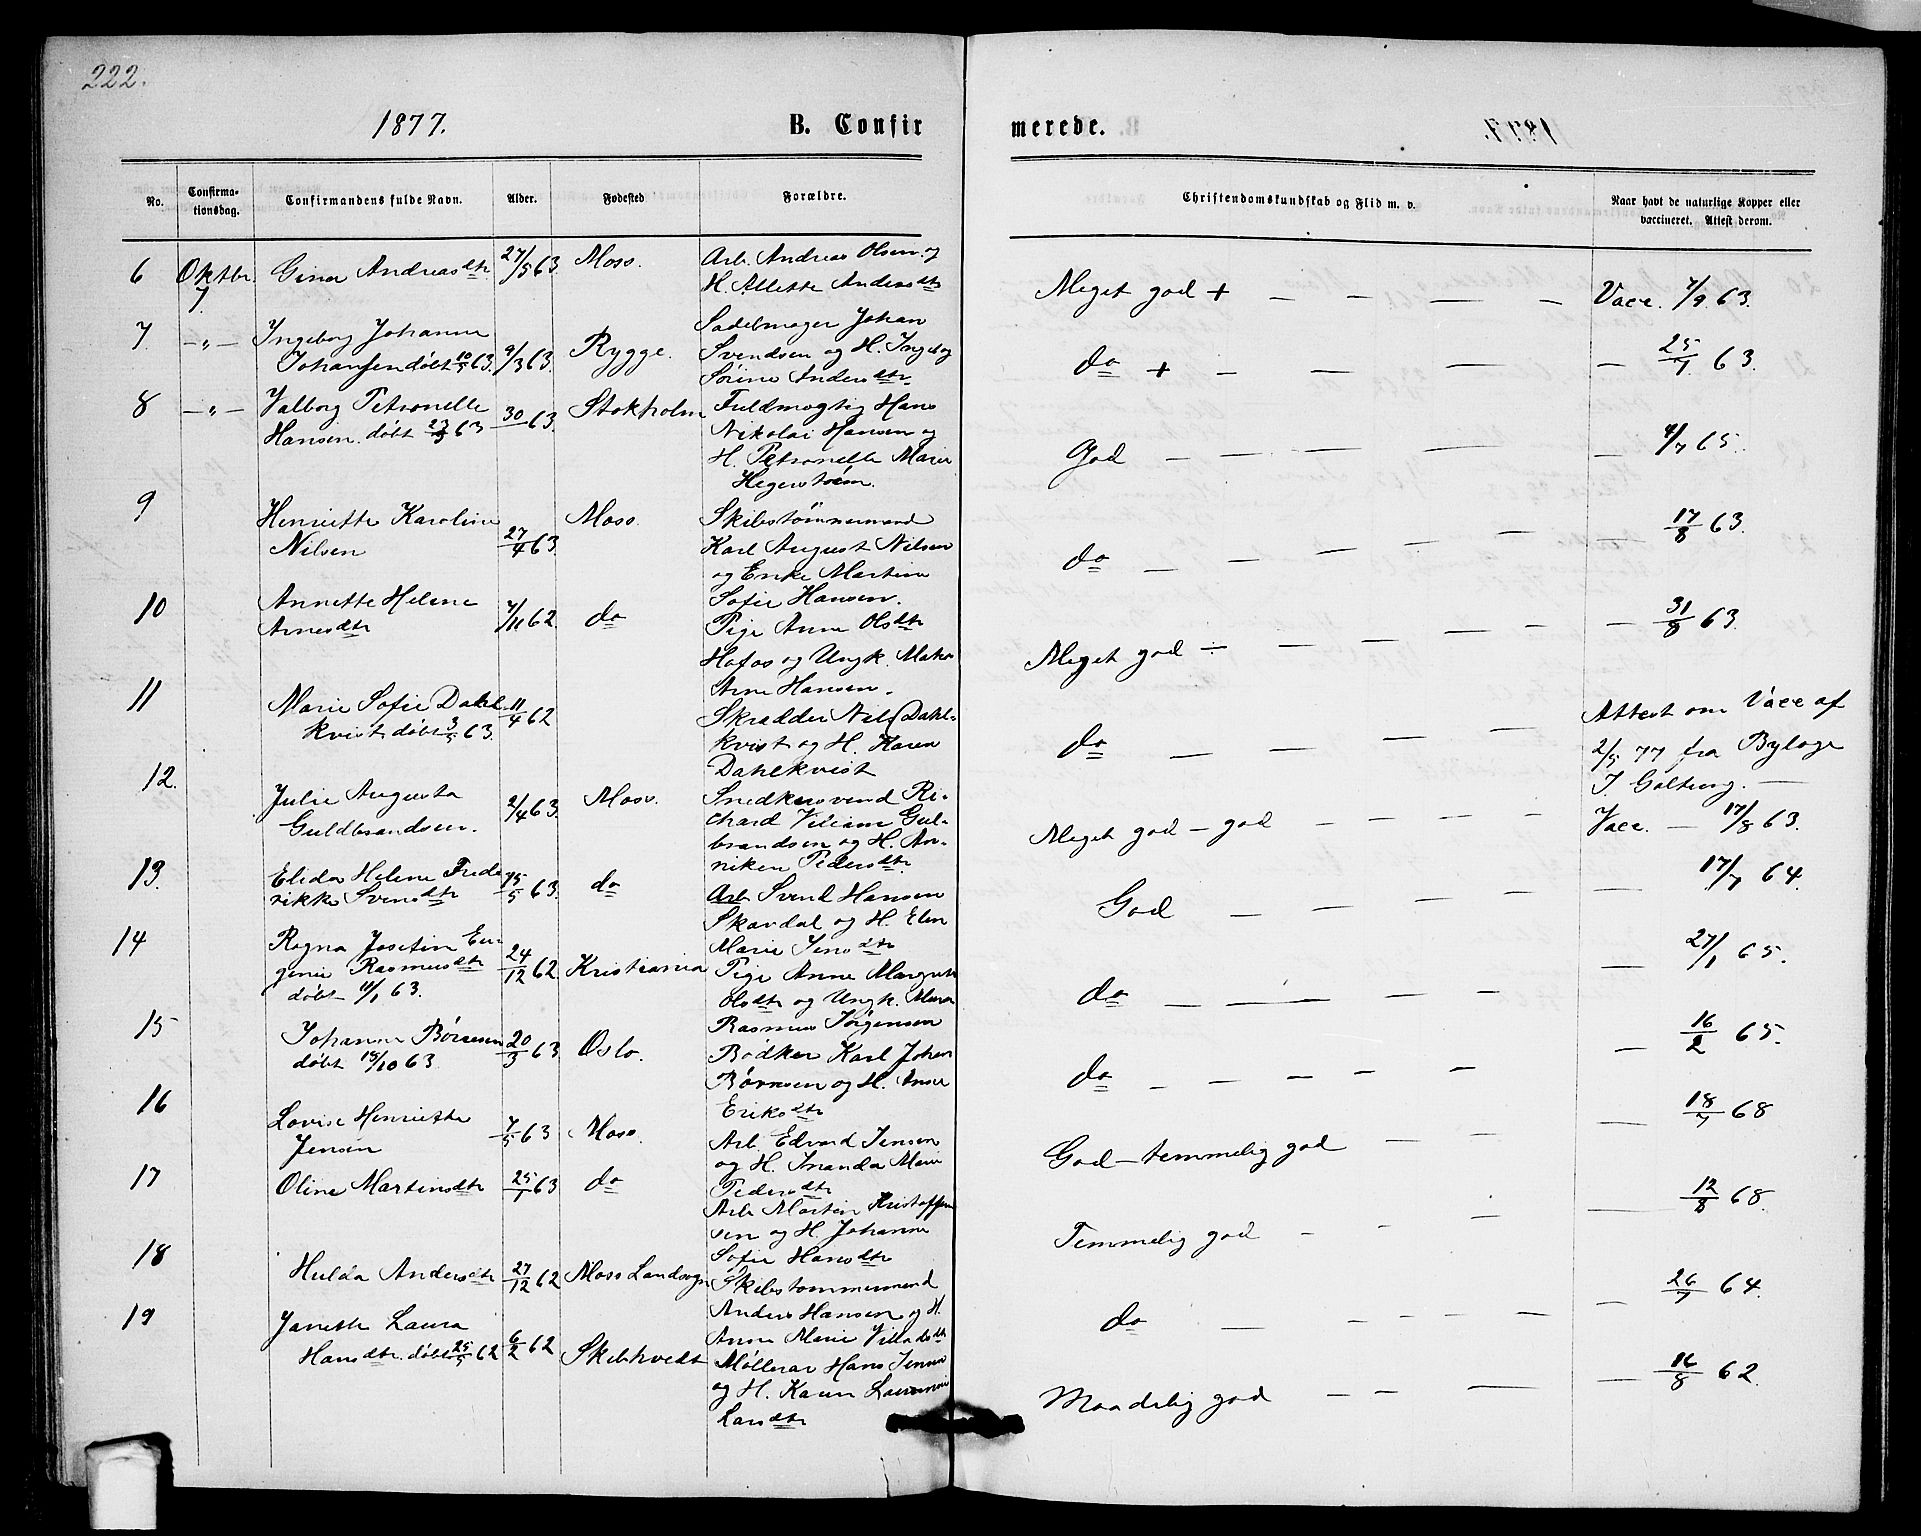 222.
1877.
B. Confir
merede.
No.
Confirma-
tionsdag.
Confirmandens fulde Navn.
Alder.
Fødested
Forældre.
Christendomskundskab og Flid m. v.
Naar havt de naturlige Kopper eller
vaccineret. Attest derom.
6 Oktbr. 7 Gina Andreasdtr 27/5 63. Moss.
Arb. Andreas Olsen og
H. Allette Andersdtr
Meget god + — — — — Vacc. 7/9 63.
7. —„— Ingeborg Johanne
Johansen døbt 10/5 63. 9/3 63. Rygge.
Sadelmager Johan
Svendsen og H. Ingeborg
Sørine Andersdtr.
do + — — — — — 25/7 63.
8 —„— Valborg Petronelle
Hansen. døbt 63 30/ 63. Stokholm
Fuldmægtig Hans
Nikolai Hansen og
H. Petronelle Marie
Hegerstrøm.
God — — — — — — 4/7 65.
9 Henriette Karoline
Nilsen 27/4 63. Moss.
Skibstømmermand
Karl August Nilsen
og Enke Martine
Sofie Hansen.
do — — — — — — 17/8 63.
10 Annette Helene
Arnesdtr 7/11 62. do
Pige Anne Olsdtr
Hafos og Ungk. Mats.
Arne Hansen.
Meget god ÷ — — — — — 31/8 63.
11 Marie Sofie Dahl-
kvist døbt 3/5 63. 11/4 62
Skrædder Nils Dahl-
kvist og H. Karen
Dahlkvist
do — — — — —
Attest om Vacc af
2/5 77 fra Bylæge
J. Gøltzong. —
12. Julie Augusta
Guldbrandsen. 2/4 63. Moss.
Snedkersvend Ri-
chard Viliam Gul-
brandsen og H. An-
niken Pedersdtr.
Meget god — god — — — — Vacc. — 17/8 63.
13. Elida Helene Frede-
rikke Svensdtr 15/5 63. do
Arb. Svend Hansen
Skavdal og H. Elen
Marie Jensdtr
God — — — — — 17/7 64.
14 Ragna Josefine Eu-
genie Rasmusdtr
døbt 11/1 63. 24/12 62 Kristiania
Pige Anne Margrete
Olsdtr og Ungk. Murer
Rasmus Jørgensen
do — — — — — 27/1 65.
15 Johanne Børresen
døbt 18/10 63. 20/3 63 Oslo.
Bødker Karl Johan
Børresen og H. Anne
Eriksdtr
do — — — — — — 16/2 65.
16 Lovise Henriette
Jensen 7/5 63 Moss.
Arb. Edvard Jensen
og H. Inanda Marie
Pedersdtr
God — temmelig god — — — 18/7 68
17 Oline Martinsdtr 25/1 63 do
Arb. Martin Kristoffer-
sen og H. Johanne
Sofie Hansdtr
Temmelig god — — — — 12/8 68.
18 Hulda Andersdtr 27/12 62 Moss Landsogn
Skibstømmermand
Anders Hansen og H.
Anne Marie Villadsdtr
do — — — — — — 26/7 64.
19 Janette Laura
Hansdtr. døbt 25/5 62 6/2 62 Skibtvedt
Møllerar. Hans Jensen
og H. Karen
Larsdtr
Maadelig god — — — — — 16/8 62.